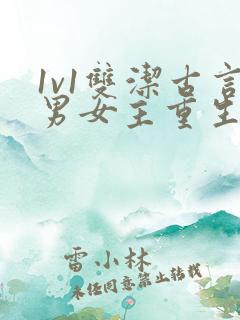 1v1雙潔古言
男女主重生
雷小林
未经同意禁止转载